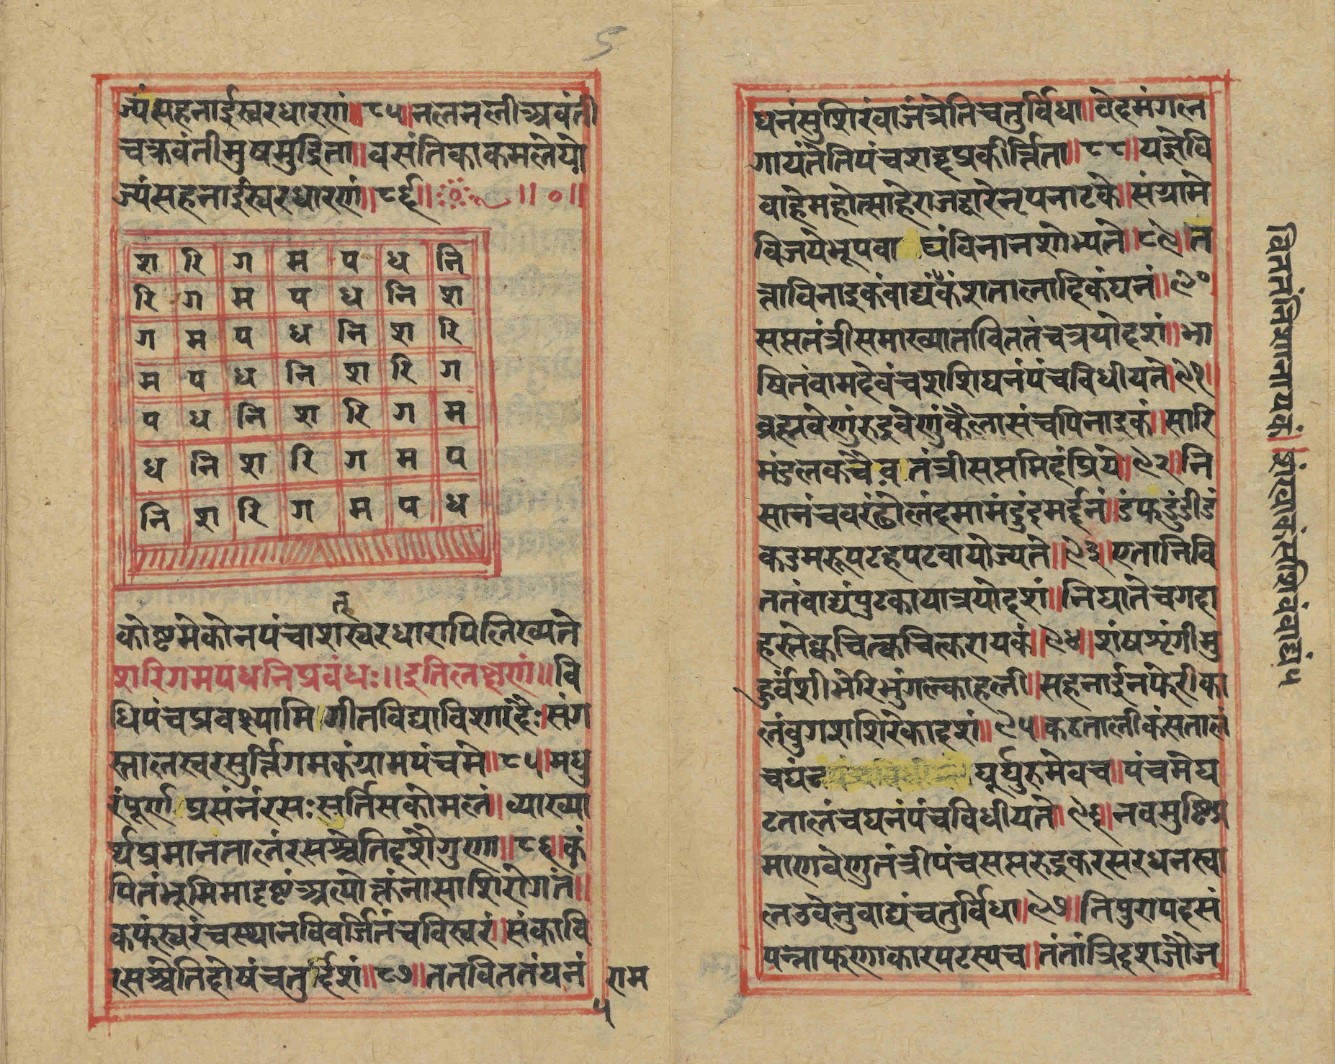 ५
ज्यंसहनाईस्वरधारणां॥८५॥नलनलीअवंती
चक्रवंतीमुषमुद्रिता॥वसंतिकाकमलेयो
ज्यंसहनाईस्वरधारणां॥८६॥ ॥०॥
शा रि ग म प ध नि
रि ग म प ध नि श
ग म प ध नि शा रि
म प ध नि श रि ग
प ध नि श रि ग म
ध नि श रि ग म प
नि श रि ग म प ध
त्
कोष्टमेकोनपंचाशस्वरधारापिलिख्यते
शरिगमपधनिप्रबंधः॥इतिलछणं॥वि
धिपंचप्रवक्ष्यामिगीतविद्याविशारदैः।संग
स्तालस्वरसुर्न्निगमकंग्रामपंचमे॥८५॥मधु
रंपूर्णप्रसंनंरसःसर्तिसकोमलं॥व्याख्या
र्थप्रमानतालंरसश्चेतिदृशैगुणा॥८६॥कं
पितंभूमिमादृष्टंअल्पोक्तंनासाशिरोगतं॥
कफस्वरंचस्थानविवर्जितंचविस्वरं॥संकावि
रसश्चेतिदोषंचतुर्द्दशं॥८७॥ततविततंघनं
राम
५
घनंसुषिरंवाजंत्रेतिचतुर्विधा॥वेदमंगल
गायंतेतिपंचशब्दप्रकीर्त्तिता॥८८॥यज्ञेवि
वाहेमहोत्साहेराजद्वारेनृपनाटके॥संग्रामे
विजयेभूपवाद्यंविनानशोभ्यते॥८९॥त
त्राविनाइकंवाद्यंकंशतालादिकंघनं॥९०
सप्ततंत्रीसमाख्याताविततंचत्रयोदशं॥भा
षितंवामदेवंचशशिघनंपंचविधीयते॥९१॥
ब्रह्मवेणुंरुद्रवेणुंकैलासंचपिनाइकं॥सारि
मंडलकंचैवतंत्रीसप्तमिदंप्रिये॥९२॥नि
सानंचवरंढोलंदमामंडुंदुमर्द्दनं॥डंफडुंडीडं
कडमरूपटहपटवायोज्यते॥९३॥एतानिवि
ततंवाद्यंपुटकायात्रयोदशं॥निघातेचगदा
हस्तेक्वचित्क्वचित्करायकं॥९४॥शंषशृंगीमु
दुर्वशीभेरिभुंगलकाहली॥सहनाईनफेरीका
लंवुगशशिरेकादशं॥९५॥कटतालीकंसतालं
चघंटघूर्घुरुमेवच॥पंचमेघ
टतालंचघनंपंचविधीयते॥९६॥नवमुष्टिप्र
माणवेणुतंत्रीपंचसप्तरुद्रकरसरंधनस्वा
लउवेनुवाद्यंचतुर्विधा॥९७॥तिपुरापदसं
पन्नाफणाकारपटस्यच॥तंतांत्रिदशजौज
विततंतिशानायकं।शंखादिकंसुशिवंवाद्यं५